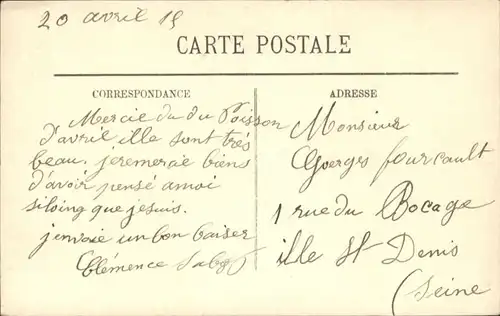 20 avril 15
CARTE POSTALE
CORRESPONDANCE
Mercie du du Poisson
d'avril ille sont très
beau. jeremercie biens
d'avoir pensé amoi
siloing que jesuis.
jenvoie un bon baiser
Clémence
ADRESSE
Monsieur
Goerges fourcault
1 rue du Bocage
ille St Denis
(Seine